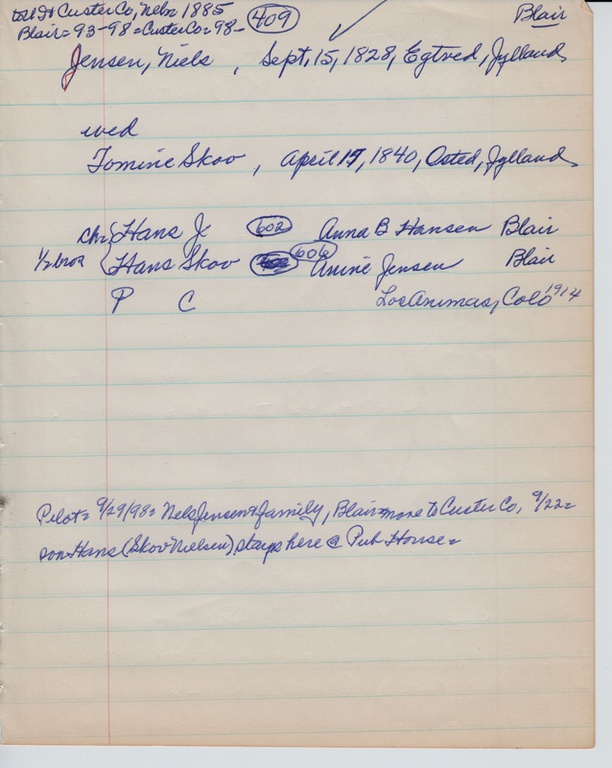 to US to Custer Co, Nebr 1885 (409) Blair
Blair = 93-98 = Custer Co = 98-
Jensen, Niels, Sept. 15, 1828, Egtved, Jylland
wed
Tomine Skov, April 17, 1840, Osted, Jylland
chr { Hans J (602) Anna B Hansen Blair
1/2 bros { Hans Skov (606) Anine Jensen Blair
P C Los Animas, Colo 1914
Pilot = 9/29/98 = Nels Jensen & family, Blair = move to Custer Co, 9/22 =
son Hans (Skov Nielsen) stays here @ Pub House =